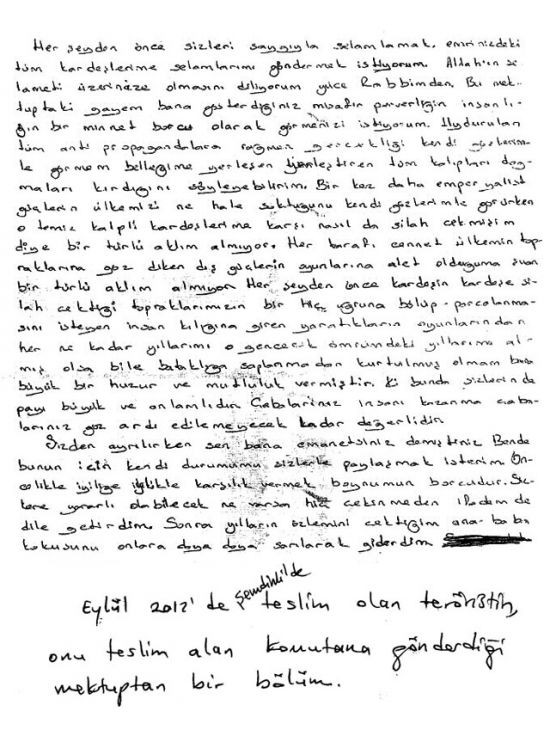 Her şeyden önce sizleri saygıyla selamlamak, emrinizdeki
tüm kardeşlerime selamlarımı göndermek istiyorum. Allah'ın se-
lameti üzerinize olmasını diliyorum yüce Rabbimden. Bu mek-
tuptaki gayem bana gösterdiğiniz misafir perverliğin insanlı-
ğın bir minnet borcu olarak görmenizi istiyorum. Uydurulan
tüm anti propagandalara rağmen gerçekliği kendi gözlerim-
le görmem belleğime yerleşen tüm kalıpları doğ-
maları kırdığını söyleyebilirim. Bir kez daha emperyalist
güçlerin ülkemizi ne hale soktuğunu kendi gözlerimle görürken
o temiz kalpli kardeşlerime karşı nasıl da silah çekmişim
diye bir türlü aklım almıyor. Her tarafı cennet ülkemin top-
raklarına göz diken dış güçlerin oyunlarına alet olduğuma
bir türlü aklım almıyor. Her şeyden önce kardeşin kardeşe si-
lah çektiği topraklarımızın bir hiç uğruna bölüp-parçalanma-
sını isteyen insan kılığına giren yaratıkların oyunlarından
her ne kadar yıllarımı o gencecik ömründeki yıllarımı al-
mış olsa bile bataklığa saplanmadan kurtulmuş olmam bana
büyük bir huzur ve mutluluk vermiştir. Ki bunda sizlerinde
payı büyük ve anlamlıdır. Çabalarınız insanı kazanma çaba-
larınız göz ardı edilemeyecek kadar değerlidir.
Sizden ayrılırken sen bana emanetsiniz demiştiniz Bende
bunun için kendi durumumu sizlerle paylaşmak isterim. Ön-
celikle iyiliğe iyilikle karşılık vermek boynumun borcudur. Siz-
lere yararlı olabilecek ne varsa hiç çekinmeden ifadem de
dile getirdim. Sonra yılların özlemini çektiğim ana-baba
kokusunu onlara doya doya sarılarak giderdim.
Eylül 2012'de Şemdinli'de teslim olan teröristin,
onu teslim alan komutana gönderdiği
mektuptan bir bölüm.